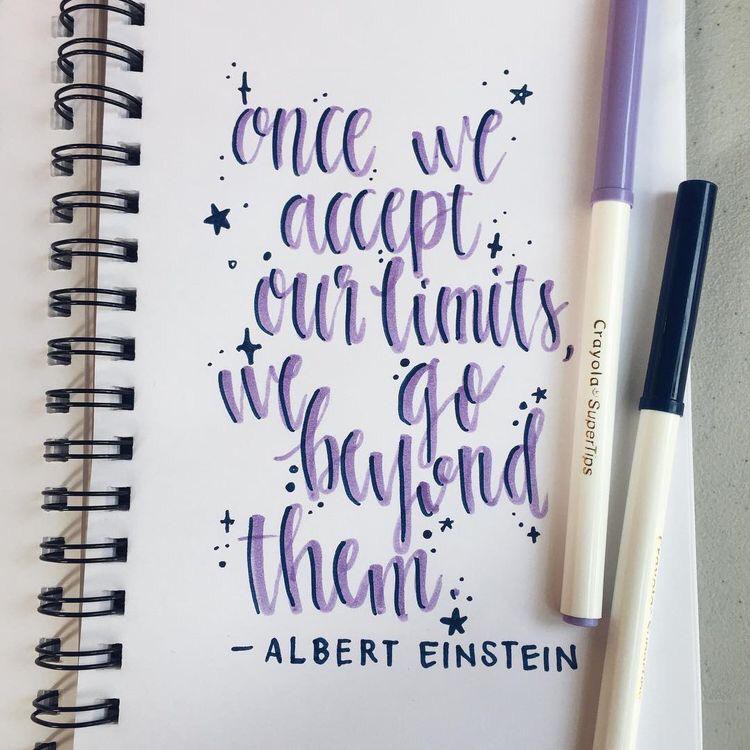 once we
accept
our limits,
we go
beyond
them.
- ALBERT EINSTEIN
Crayola SuperTips